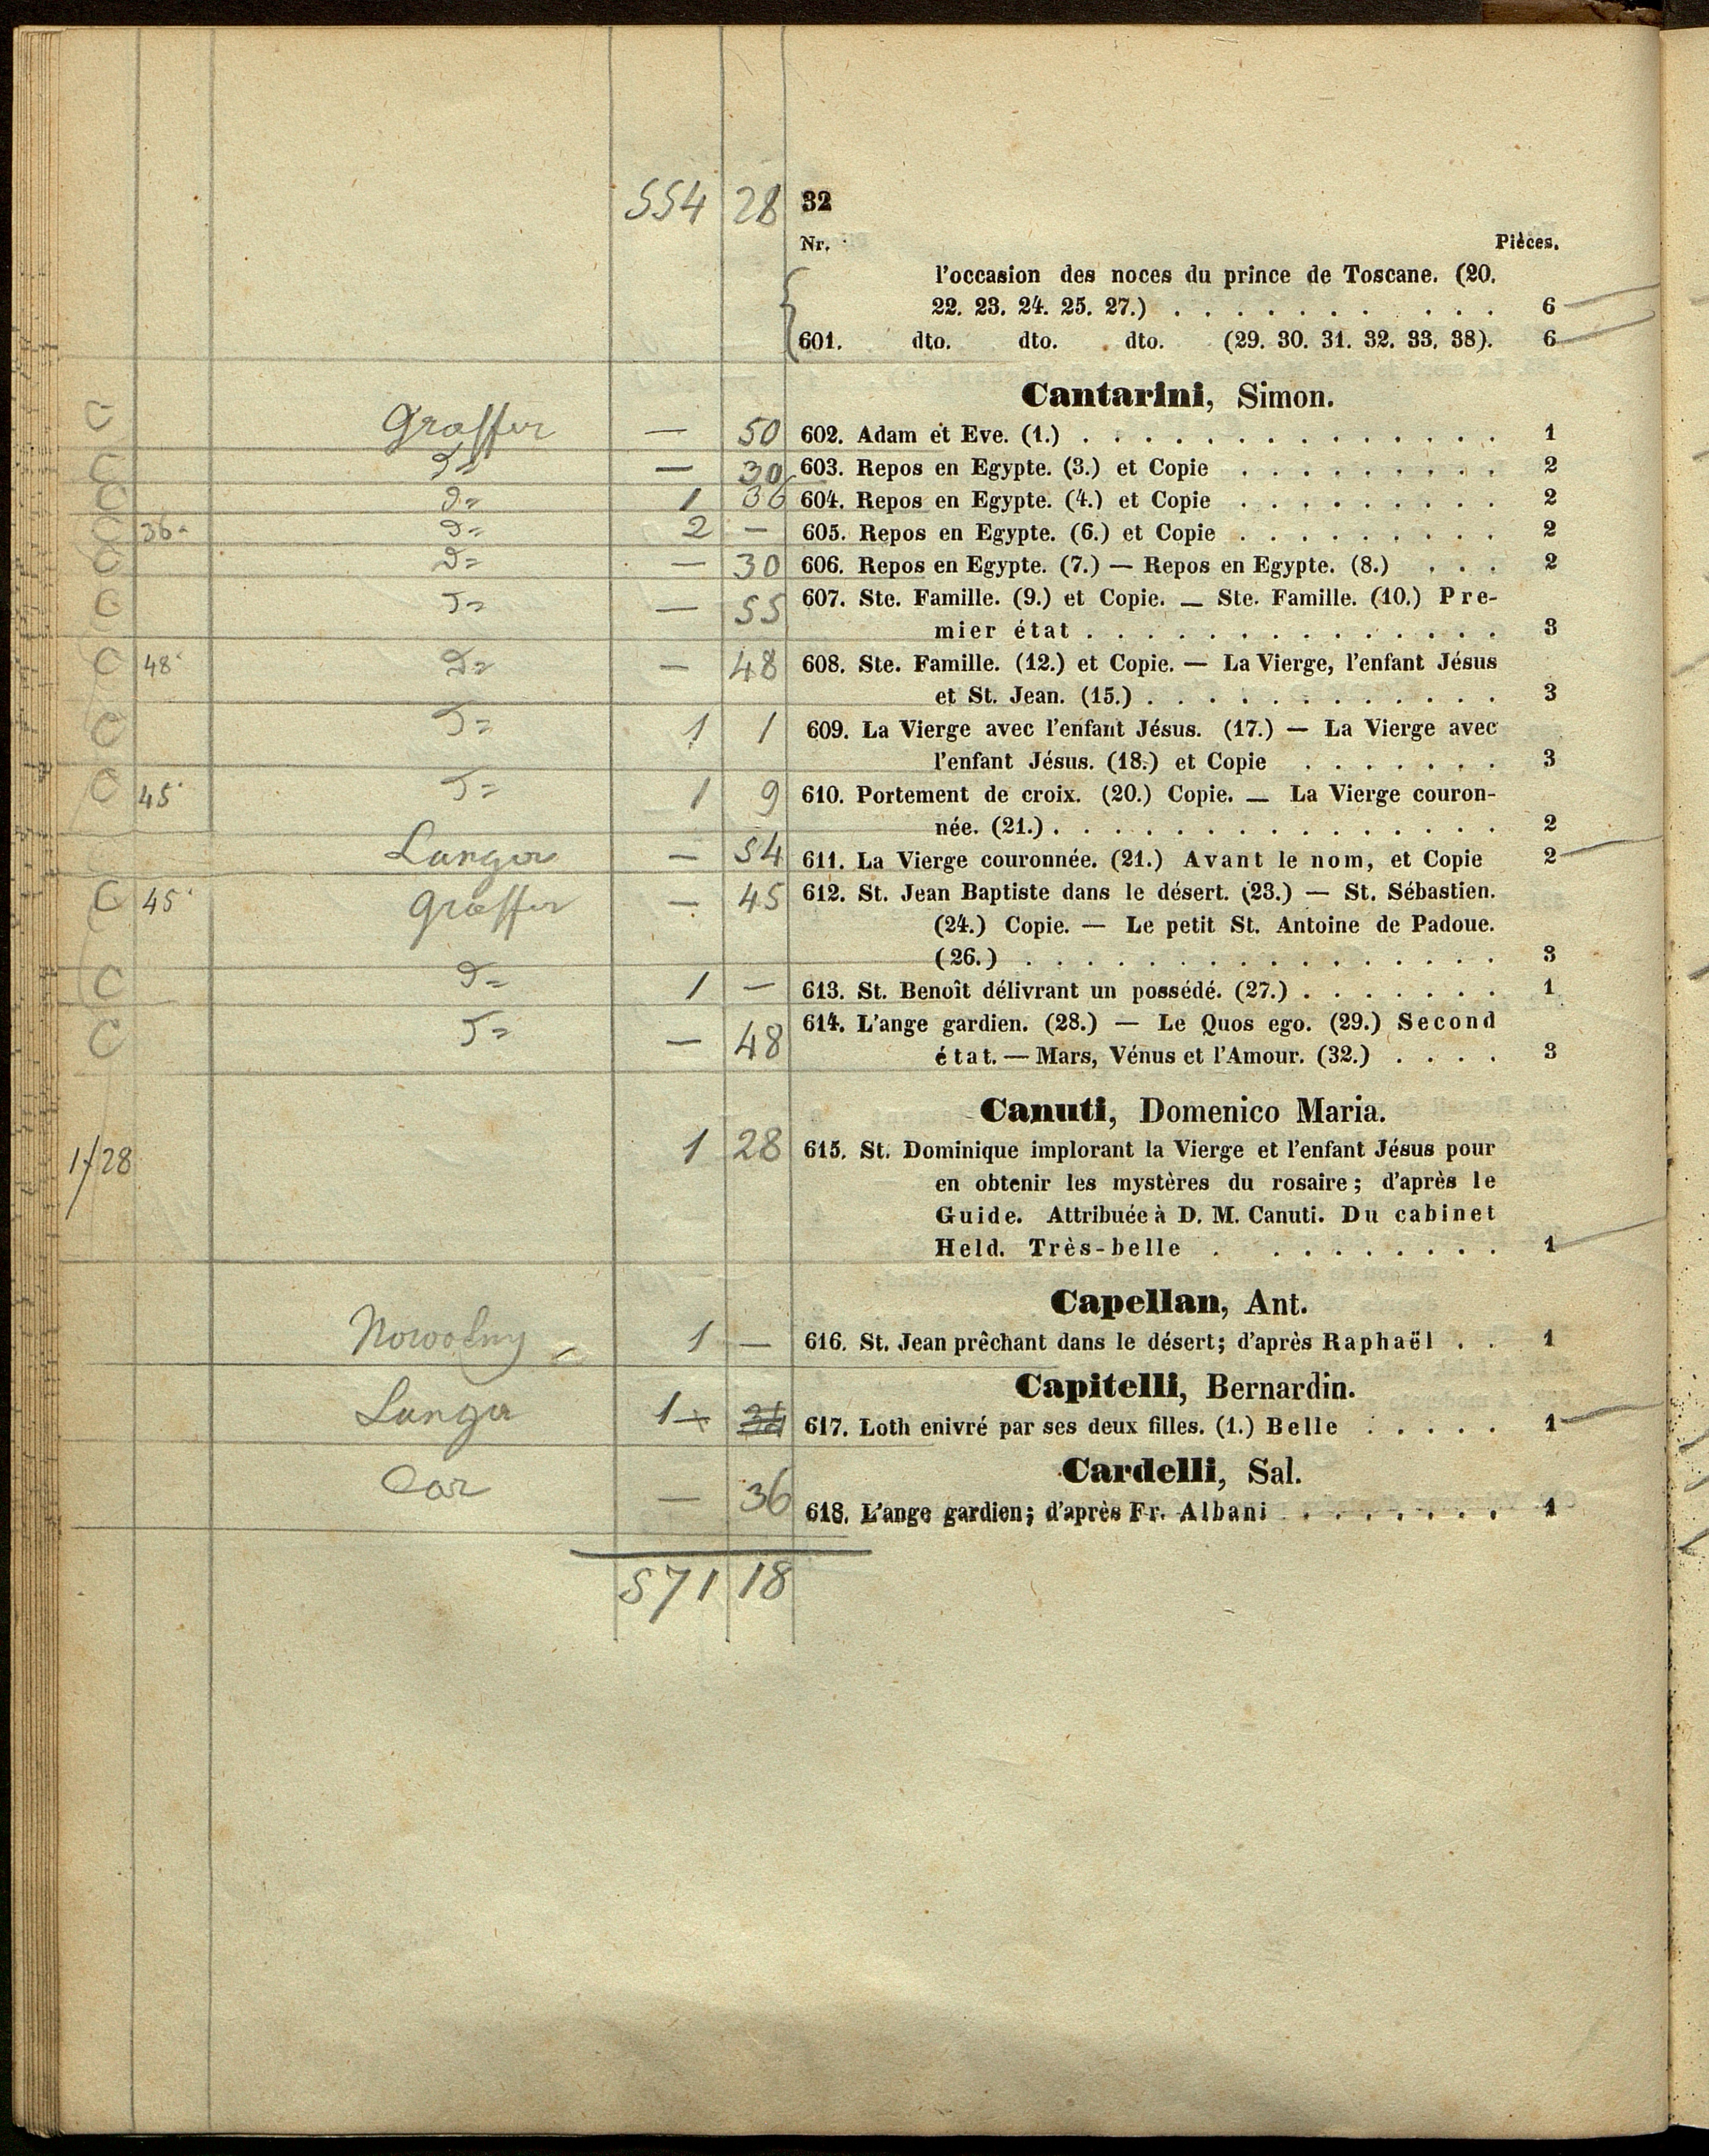 554 28 32
Nr. Pièces.
l'occasion des noces du prince de Toscane. (20.
22. 23. 24. 25. 27.) . . . . . . . . . . 6
601. dto. dto. dto. (29. 30. 31. 32. 33. 38). 6
Cantarini, Simon.
C Graffer — 50 602. Adam et Eve. (1.) . . . . . . . . . . . . . . 1
C — 30 603. Repos en Egypte. (3.) et Copie . . . . . . . . . 2
C 1 36 604. Repos en Egypte. (4.) et Copie . . . . . . . . . 2
C 36 2 — 605. Repos en Egypte. (6.) et Copie . . . . . . . . . 2
C — 30 606. Repos en Egypte. (7.) — Repos en Egypte. (8.) . . . 2
C — 55 607. Ste. Famille. (9.) et Copie. — Ste. Famille. (10.) Pre-
mier état . . . . . . . . . . . . . . 3
C 48 — 48 608. Ste. Famille. (12.) et Copie. — La Vierge, l'enfant Jésus
et St. Jean. (15.) . . . . . . . . . . . . 3
C 1 1 609. La Vierge avec l'enfant Jésus. (17.) — La Vierge avec
l'enfant Jésus. (18.) et Copie . . . . . . . 3
C 45 1 9 610. Portement de croix. (20.) Copie. — La Vierge couron-
née. (21.) . . . . . . . . . . . . . . . 2
Langer — 54 611. La Vierge couronnée. (21.) Avant le nom, et Copie 2
C 45 Graffer — 45 612. St. Jean Baptiste dans le désert. (23.) — St. Sébastien.
(24.) Copie. — Le petit St. Antoine de Padoue.
(26.) . . . . . . . . . . . . . . . . 3
C 1 — 613. St. Benoît délivrant un possédé. (27.) . . . . . . . 1
C — 48 614. L'ange gardien. (28.) — Le Quos ego. (29.) Second
état. — Mars, Vénus et l'Amour. (32.) . . . . 3
Canuti, Domenico Maria.
1/28 1 28 615. St. Dominique implorant la Vierge et l'enfant Jésus pour
en obtenir les mystères du rosaire; d'après le
Guide. Attribuée à D. M. Canuti. Du cabinet
Held. Très-belle . . . . . . . . . 1
Capellan, Ant.
Nowotny 1 — 616. St. Jean prêchant dans le désert; d'après Raphaël . . 1
Capitelli, Bernardin.
Langer 1 617. Loth enivré par ses deux filles. (1.) Belle . . . . . 1
Cardelli, Sal.
— 36 618. L'ange gardien; d'après Fr. Albani . . . . . . . 1
571 18